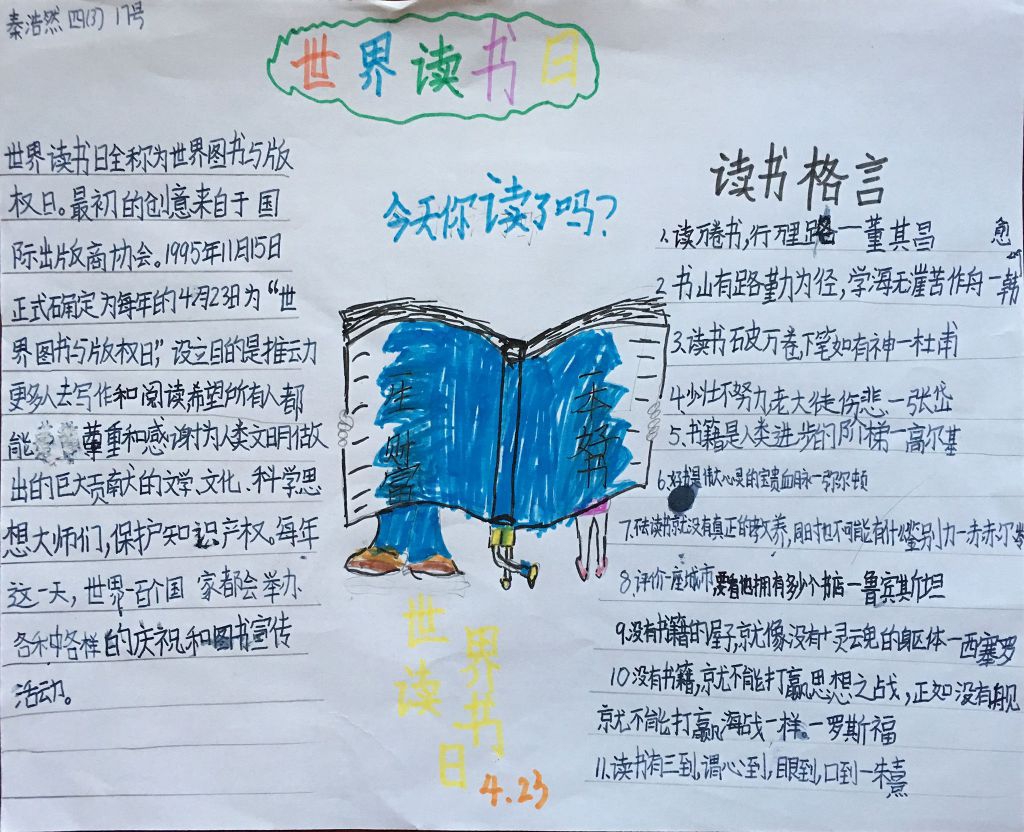 秦浩然 四(3) 17号
世界读书日
世界读书日全称为世界图书与版
权日。最初的创意来自于国
际出版商协会。1995年11月15日
正式确定为每年的4月23日为“世
界图书与版权日”,设立目的是推动
更多人去写作和阅读希望所有人都
能尊重和感谢为人类文明做
出的巨大贡献的文学、文化、科学思
想大师们,保护知识产权。每年
这一天,世界一百个国家都会举办
各种各样的庆祝和图书宣传
活动。
今天你读了吗?
一生财富
一本好书
世界
读书
日
4.23
读书格言
1.读万卷书,行万里路—董其昌
2 书山有路勤为径,学海无崖苦作舟—韩愈
3.读书破万卷,下笔如有神—杜甫
4.少壮不努力,老大徒伤悲—张岱
5.书籍是人类进步的阶梯—高尔基
6.好书是伟大心灵的宝贵血脉—弥尔顿
7.不去读书就没有真正的教养,同时也不可能有什么鉴别力—赤赤尔
8.评价一座城市要看他拥有多少个书店—鲁宾其斯坦
9.没有书籍的屋子,就像没有灵魂的身体—西塞罗
10没有书籍,就不能打赢思想之战,正如没有舰
就不能打赢海战一样。—罗斯福
11.读书有三到,谓心到,眼到,口到—朱熹